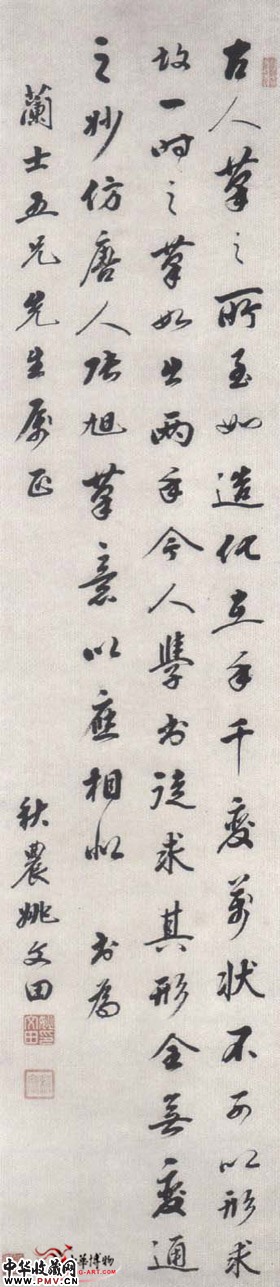 古人筆之所至如造化在手千變萬狀不可以形求
故一時之筆如出兩手今人學書從求其形全無變通
之妙仿唐人張旭筆意以應相似 書為
蘭士五兄先生屬正
秋農姚文田
中华收藏网
www.PMV.CN